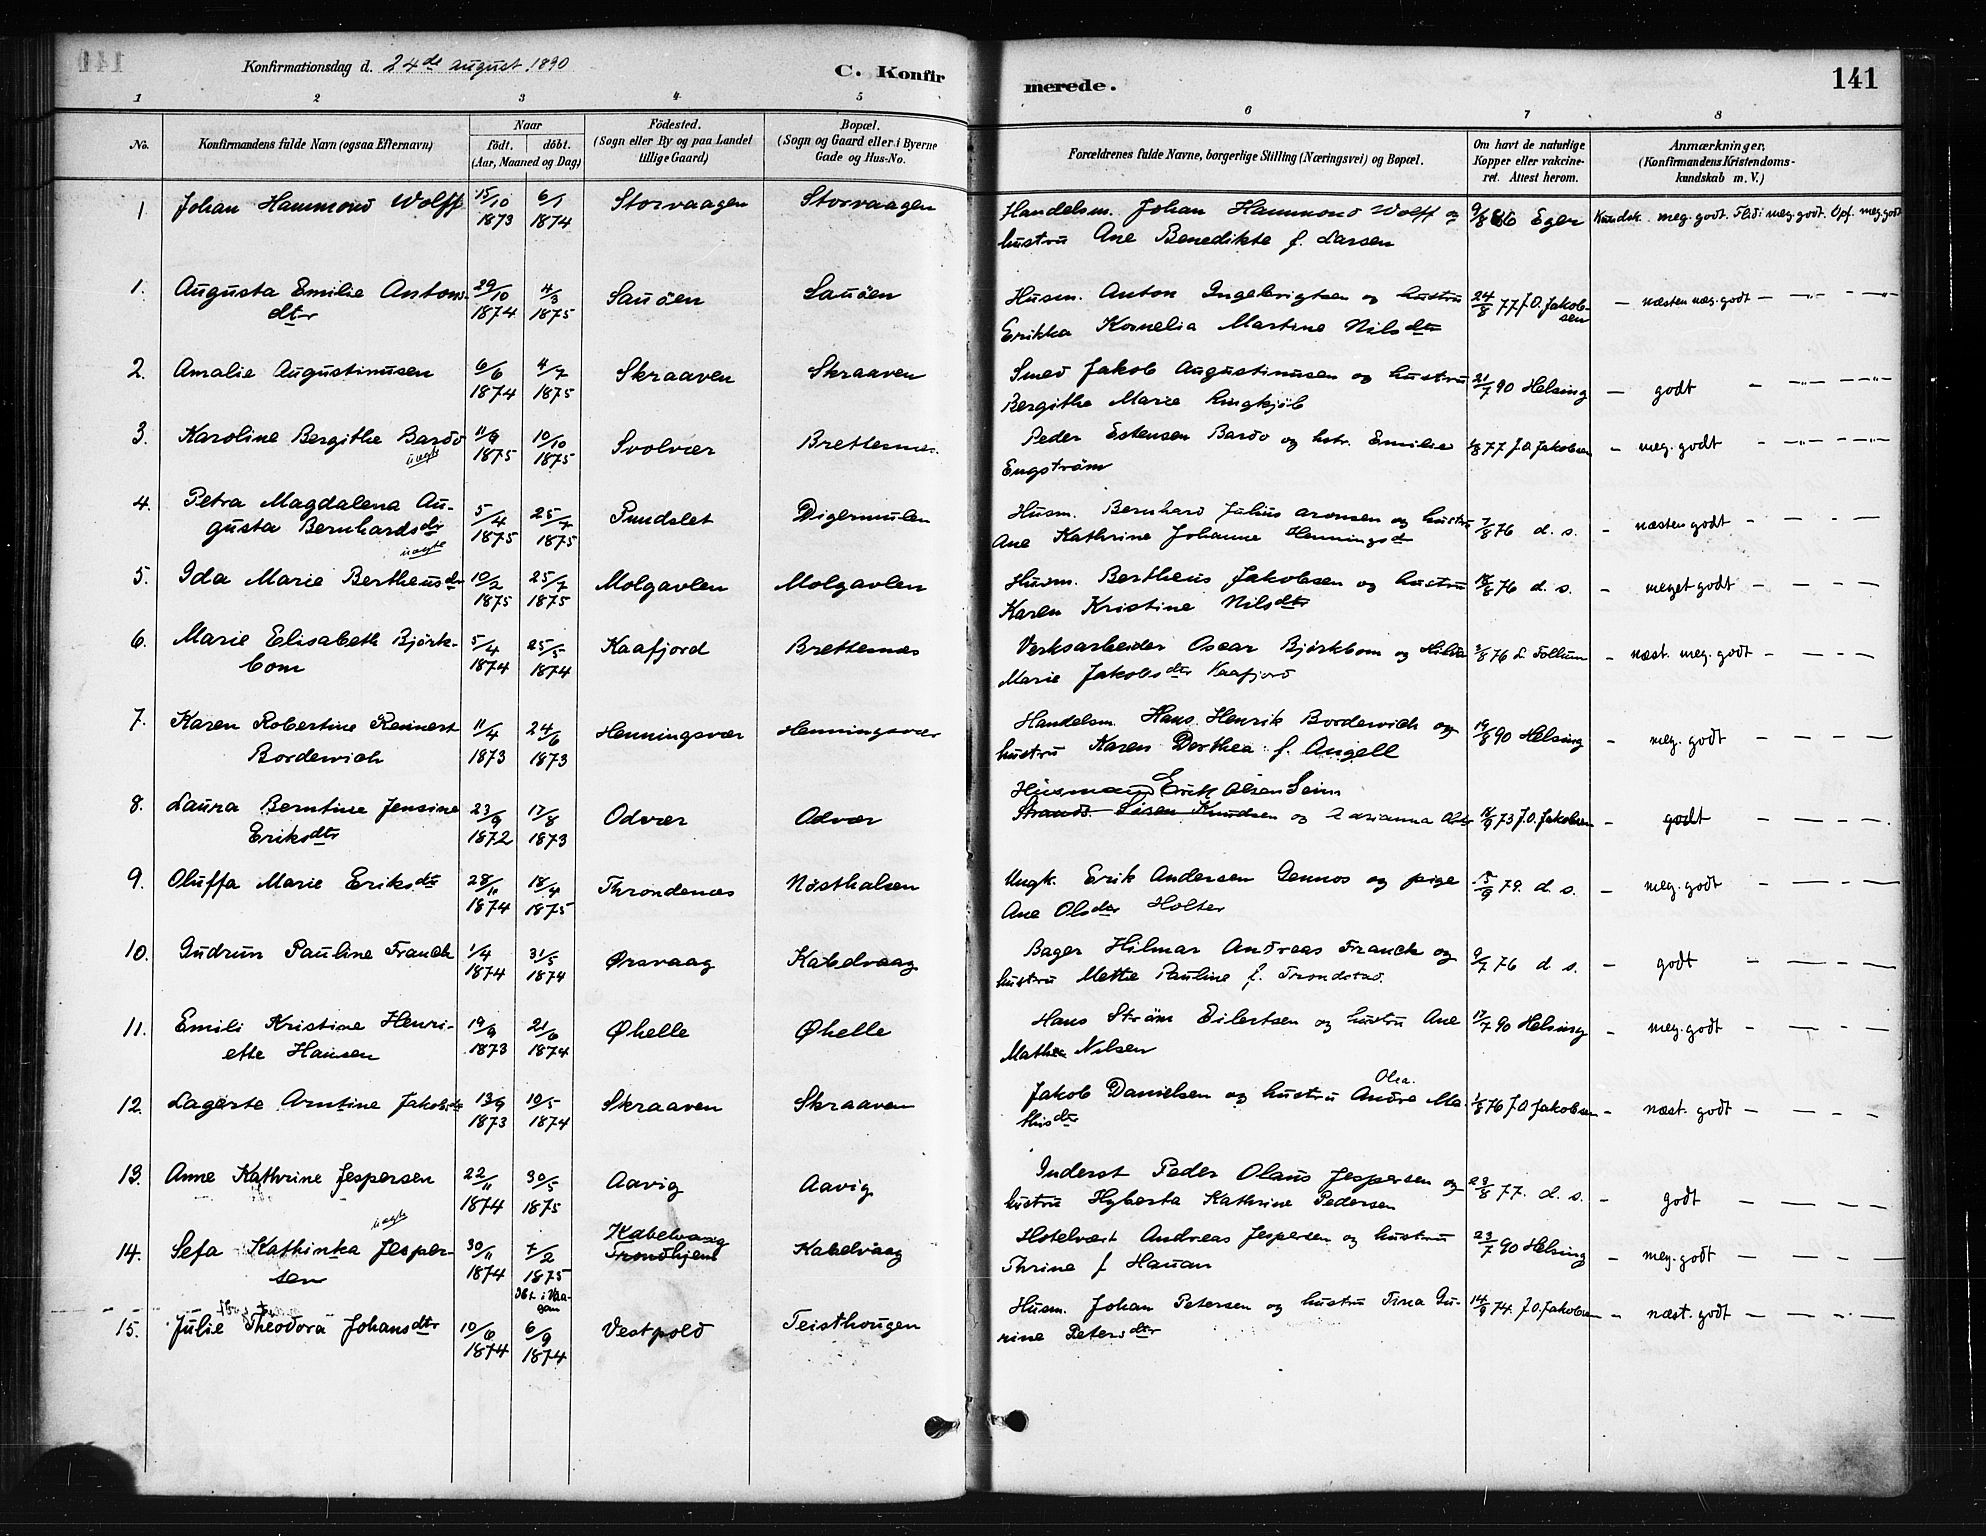 Konfirmationsdag d. 24de august 1890
C. Konfirmerede.
141
1 2 3 4 5 6 7 8
No.
Konfirmandens fulde Navn (ogsaa Efternavn)
Naar
født. døbt.
(Aar, Maaned og Dag)
Fødested.
(Sogn eller By og paa Landet
tillige Gaard)
Bopæl.
(Sogn og Gaard eller i Byerne
Gade og Hus-No.
Forældrenes fulde Navne, borgerlige Stilling (Næringsvei) og Bopæl.
Om havt de naturlige
Kopper eller vakcine-
ret. Attest herom.
Anmærkninger.
(Konfirmandens Kristendoms-
kundskab m. V.)
1 Johan Hammond Wolff 15/10 1873 6/1 1874 Storvaagen Storvaagen Handelsm. Johan Hammond Wolff og
hustru Ane Benedikte f. Larsen 9/8 86 Eger Kundsk. meg. godt. Flid meg. godt. Opf. meg godt
1. Augusta Emilie Antons-
dtr 29/10 1874 4/3 1875 Sauøen Sauøen Husm. Anton Ingebrigtsen og hustru
Erikka Kornelia Martine Nilsdtr 24/8 77 J.O. Jakobsen – næsten meg. godt – „ – „
2. Amalie Augustinusen 6/6 1874 4/7 1875 Skraaven Skraaven Smed Jakob Augustinusen og hustru
Bergithe Marie Ringkjøb 21/7 90 Helsing – godt – „ – „
3. Karoline Bergithe Bardo
uægte 11/9 1875 10/10 1875 Svolvær Brettesnes Peder Estensen Bardo og hstr. Emilie
Engstrøm /8 77 J.O. Jakobsen – meg. godt – „ – „
4. Petra Magdalena Au-
gusta Bernhardsdtr 5/4 1875 25/7 1875 Pundslet Digermulen Husm. Bernhard Julius Aronsen og hustru
Ane Kathrine Johanne Henningsdtr 7/8 76 d. s. – næsten godt – – –
5. Ida Marie Bertheusdtr
uægte 10/2 1875 25/7 1875 Molgavlen Molgavlen Husm. Bertheus Jakobsen og hustru
Karen Kristine Nilsdtr 18/8 76 d. s. – meget godt – – –
6. Marie Elisabeth Björk-
bom 5/4 1874 25/5 1874 Kaafjord Brettesnes Verksarbeider Oscar Bjørkbom og Hilda
Marie Jakobsdtr Kaafjord 3/8 76 L. Tollum – næst. meg. godt – – –
7. Karen Robertine Reinert
Borderwich 11/4 1873 24/6 1873 Henningsvær Henningsvær Handelsm. Hans Henrik Borderwich og
hustru Karen Dorthea f. Angell 19/8 90 Helsing – meg. godt – – –
8. Laura Berntine Jensine
Eriksdtr 23/9 1872 17/8 1873 Odvær Odvær Husmand Erik Olsen Seines
Strands. Sören Knudsen og Marianna Olsdtr 18/9 73 J.O. Jakobsen – godt – – –
9. Oluffa Marie Eriksdtr 28/11 1874 18/4 1875 Throndenæs Nøsthalsen Ungk. Erik Andersen Gennos og pige
Ane Olsdtr Holter 15/9 79. d. s. – meg. godt – – –
10. Gudrun Pauline Franck 1/4 1874 31/5 1874 Ørsvaag Kabelvaag Bager Hilmar Andreas Franck og
hustru Mette Pauline f. Trondstad. 9/7 76 d. s. – godt – – –
11. Emili Kristine Henri-
ette Hansen 19/9 1873 21/6 1874 Øhelle Øhelle Hans Strøm Eilertsen og hustru Ane
Mathea Nilsen 17/7 90 Helsing – meg. godt – – –
12. Lagerte Arntine Jakobsdtr 13/9 1873 10/5 1874 Skraaven Skraaven Jakob Danielsen og hustru Andre Olea. Ma-
thisdtr 1/8 76 J.O. Jakobsen – næst. godt – – –
13. Anne Kathrine Jespersen 22/11 1874 30/5 1875 Aavig Aavig Inderst Peder Olaus Jespersen og
hustru Hyberta Kathrine Pedersen 23/8 77. d. s. – godt – – –
14. Sefa Kathinka Jesper-
sen
uægte 30/11 1874 7/2 1875 Kabelvaag
Trondhjem Kabelvaag Hotelvært Andreas Jespersen og hustru
Thrine f Hauan 23/7 90 Helsing – meg. godt – – –
15. Julie Theodora Johansdtr 10/6 1874 dbt. i Vaa-
gan 6/9 1874 Vestpold Teisthougen Husm. Johan Petersen og hustru Tina Gu-
rine Petersdtr 14/9 74. J.O. Jakobsen – næst. godt – – –